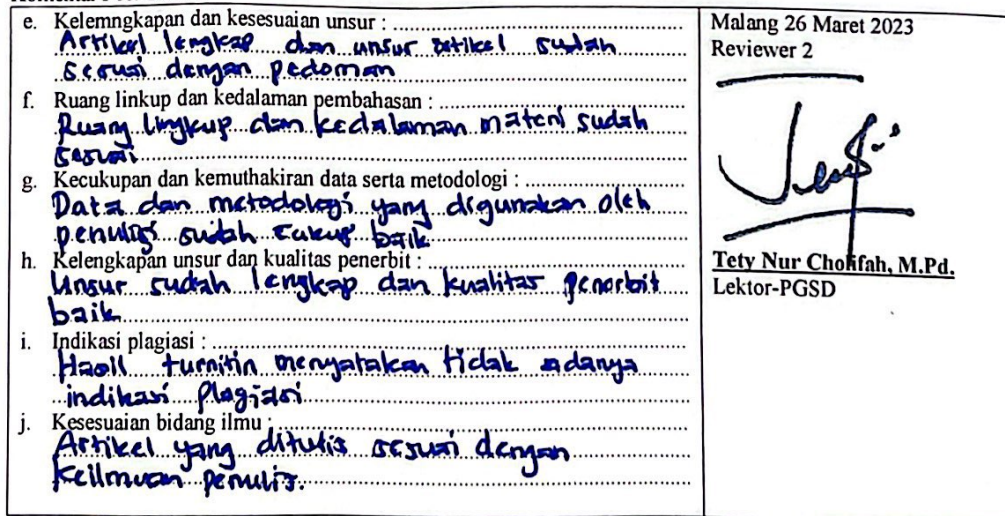 e. Kelemngkapan dan kesesuaian unsur :
Artikel lengkap dan unsur artikel sudah
sesuai dengan pedoman
f. Ruang linkup dan kedalaman pembahasan :
Ruang lingkup dan kedalaman materi sudah
sesuai
g. Kecukupan dan kemuthakiran data serta metodologi :
Data dan metodologi yang digunakan oleh
penulis sudah cukup baik
h. Kelengkapan unsur dan kualitas penerbit :
Unsur sudah lengkap dan kualitas penerbit
baik
i. Indikasi plagiasi :
Hasil turnitin menyatakan tidak adanya
indikasi Plagiasi
j. Kesesuaian bidang ilmu :
Artikel yang ditulis sesuai dengan
keilmuan penulis.
Malang 26 Maret 2023
Reviewer 2
Tety Nur Cholifah, M.Pd.
Lektor-PGSD